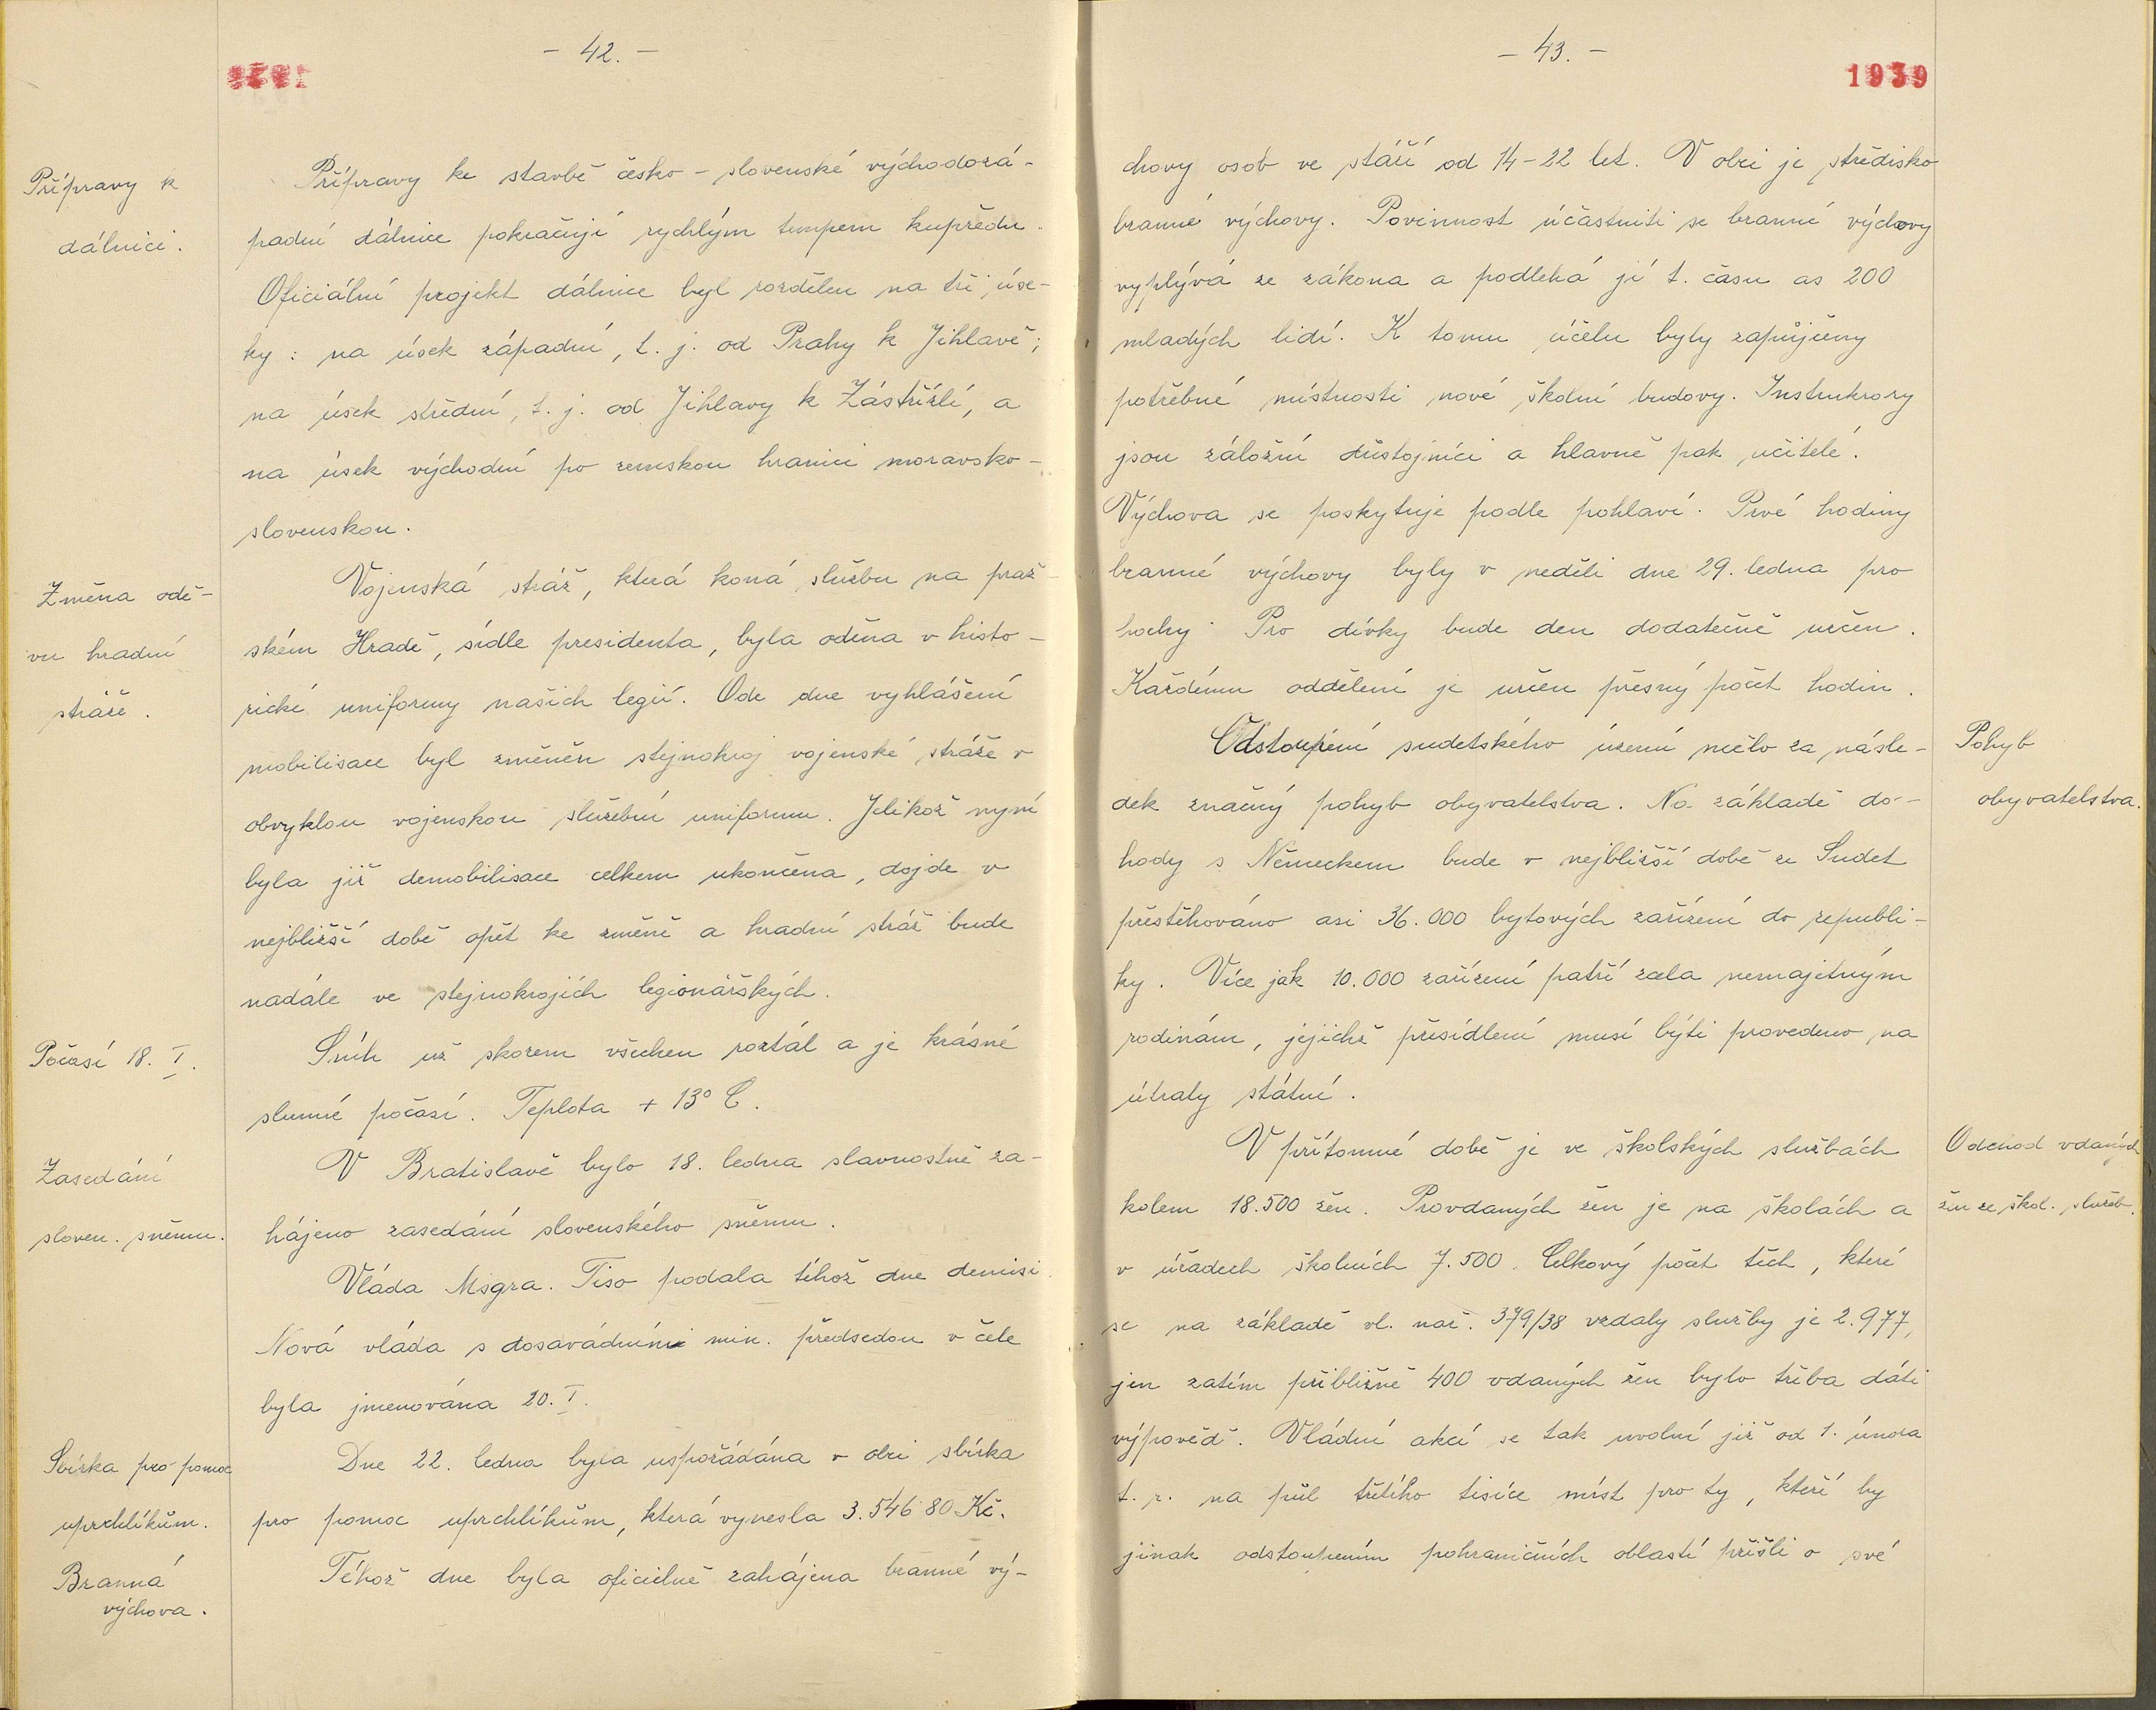 - 42. -
Přípravy k
dálnici.
Přípravy ke stavbě česko-slovenské východozá-
padní dálnice pokračují rychlým tempem kupředu.
Oficiální projekt dálnice byl rozdělen na tři úse-
ky: na úsek západní, t. j. od Prahy k Jihlavě;
na úsek střední, t. j. od Jihlavy k Zástřizlí, a
na úsek východní po zemskou hranici moravsko-
slovenskou.
Změna odě-
vu hradní
stráže.
Vojenská stráž, která koná službu na praž-
ském Hradě, sídle presidenta, byla oděna v histo-
rické uniformy našich legií. Ode dne vyhlášení
mobilisace byl změněn stejnokroj vojenské stráže v
obvyklou vojenskou služební uniformu. Jelikož nyní
byla již demobilisace celkem ukončena, dojde v
nejbližší době opět ke změně a hradní stráž bude
nadále ve stejnokrojích legionářských.
Počasí 18. I.
Sníh už skorem všechen roztál a je krásné
slunné počasí. Teplota + 13° C.
Zasedání
sloven. sněmu.
V Bratislavě bylo 18. ledna slavnostně za-
hájeno zasedání slovenského sněmu.
Vláda Msgra. Tiso podala téhož dne demisi.
Nová vláda s dosavádními min. předsedou v čele
byla jmenována 20. I.
Sbírka pro pomoc
uprchlíkům.
Dne 22. ledna byla uspořádána v obci sbírka
pro pomoc uprchlíkům, která vynesla 3.546·80 Kč.
Branná
výchova.
Téhož dne byla oficielně zahájena branné vý-
- 43. -
1939
chovy osob ve stáří od 14-22 let. V obci je středisko
branné výchovy. Povinnost účastniti se branné výchovy
vyplývá ze zákona a podléhá jí t. času as 200
mladých lidí. K tomu účelu byly zapůjčeny
potřebné místnosti nové školní budovy. Instrukrory
jsou záložní důstojníci a hlavně pak učitelé.
Výchova se poskytuje podle pohlaví. Prvé hodiny
branné výchovy byly v neděli dne 29. ledna pro
hochy. Pro dívky bude den dodatečně určen.
Každému oddělení je určen přesný počet hodin.
Pohyb
obyvatelstva.
Odstoupení sudetského území mělo za násle-
dek značný pohyb obyvatelstva. Na základě do-
hody s Německem bude v nejbližší době ze Sudet
přestěhováno asi 36.000 bytových zařízení do republi-
ky. Více jak 10.000 zařízení patří zcela nemajetným
rodinám, jejichž přesídlení musí býti provedeno na
útraty státní.
Odchod vdaných
žen ze škol. služeb.
V přítomné době je ve školských službách
kolem 18.500 žen. Provdaných žen je na školách a
v úřadech školních 7.500. Celkový počet těch, které
se na základě vl. nař. 379/38 vzdaly služby je 2.977,
jen zatím přibližně 400 vdaných žen bylo třeba dáti
výpověď. Vládní akcí se tak uvolní již od 1. února
t. r. na půl třetího tisíce míst pro ty, kteří by
jinak odstoupením pohraničních oblastí přišli o své